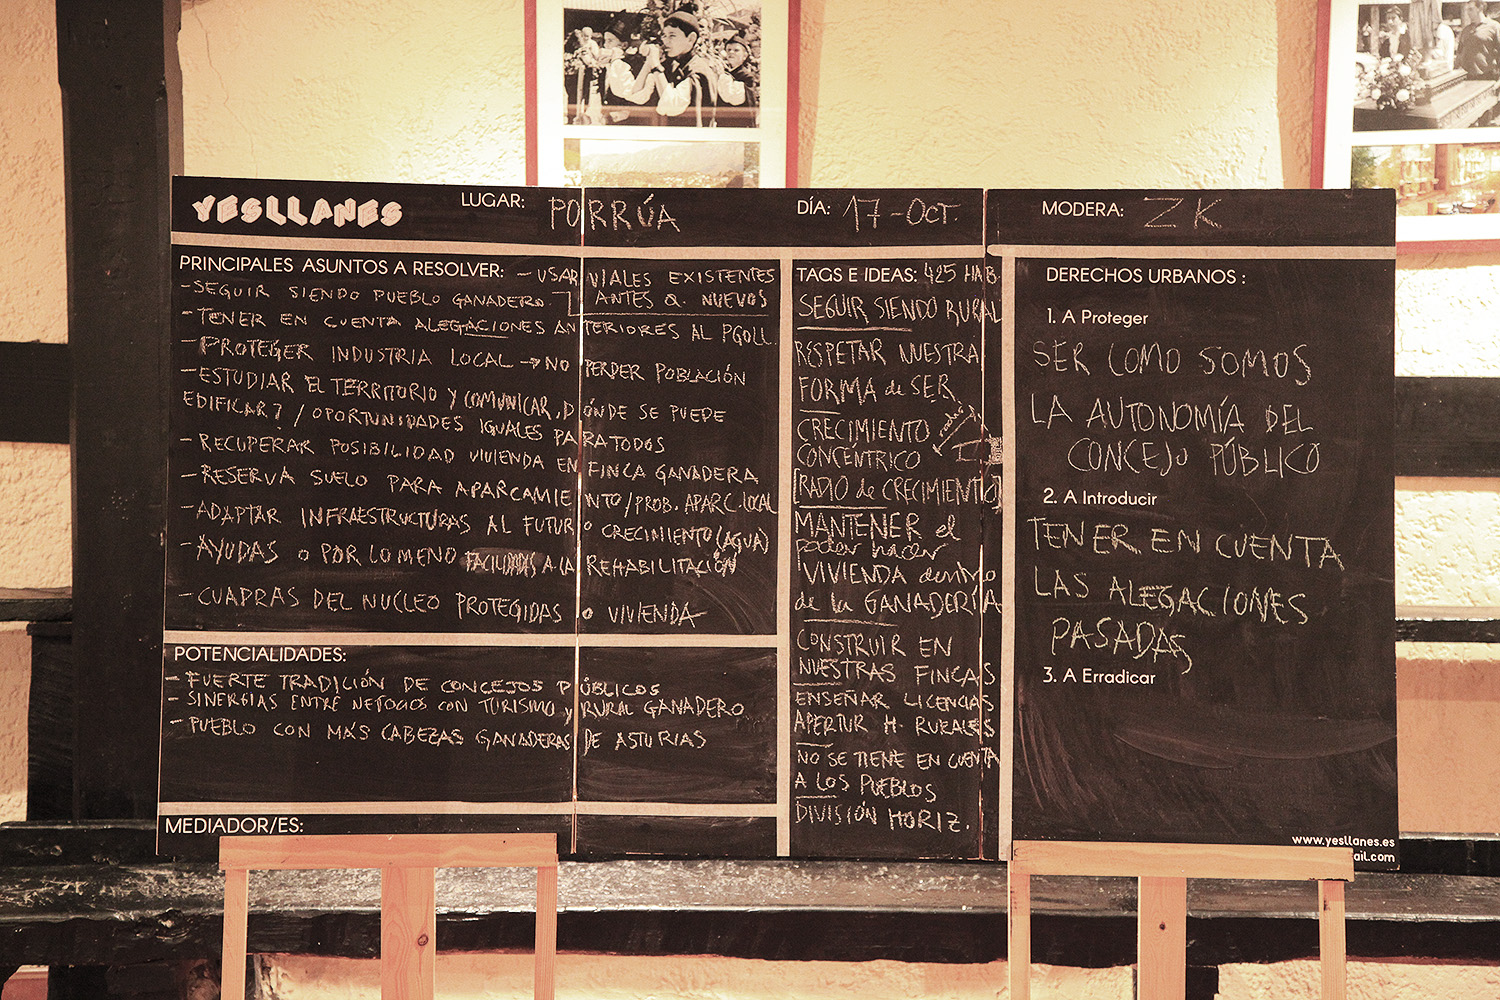 YESLLANES
LUGAR: PORRÚA
DÍA: 17-OCT.
MODERA: ZK
PRINCIPALES ASUNTOS A RESOLVER: - USAR VIALES EXISTENTES
ANTES Q. NUEVOS
- SEGUIR SIENDO PUEBLO GANADERO.
- TENER EN CUENTA ALEGACIONES ANTERIORES AL PGOLL.
- PROTEGER INDUSTRIA LOCAL → NO PERDER POBLACIÓN
- ESTUDIAR EL TERRITORIO Y COMUNICAR, DÓNDE SE PUEDE
EDIFICAR? / OPORTUNIDADES IGUALES PARA TODOS
- RECUPERAR POSIBILIDAD VIVIENDA EN FINCA GANADERA
- RESERVA SUELO PARA APARCAMIENTO / PROB. APARC. LOCAL
- ADAPTAR INFRAESTRUCTURAS AL FUTURO CRECIMIENTO (AGUA)
- AYUDAS o POR LO MENO FACILIDADES A LA REHABILITACIÓN
- CUADRAS DEL NUCLEO PROTEGIDAS o VIVIENDA
POTENCIALIDADES:
- FUERTE TRADICIÓN DE CONCEJOS PÚBLICOS
- SINERGIAS ENTRE NEGOCIOS CON TURISMO y RURAL GANADERO
- PUEBLO CON MÁS CABEZAS GANADERAS DE ASTURIAS
MEDIADOR/ES:
TAGS E IDEAS: 425 HAB.
SEGUIR SIENDO RURAL
RESPETAR NUESTRA
FORMA de SER
CRECIMIENTO
CONCENTRICO
[RADIO de CRECIMIENTO]
MANTENER el
poder hacer
VIVIENDA dentro
de la GANADERÍA
CONSTRUIR EN
NUESTRAS FINCAS
ENSEÑAR LICENCIAS
APERTUR H. RURALES
NO SE TIENE EN CUENTA
A LOS PUEBLOS
DIVISIÓN HORIZ.
DERECHOS URBANOS :
1. A Proteger
SER COMO SOMOS
LA AUTONOMÍA DEL
CONCEJO PÚBLICO
2. A Introducir
TENER EN CUENTA
LAS ALEGACIONES
PASADAS
3. A Erradicar
www.yesllanes.es
ail.com